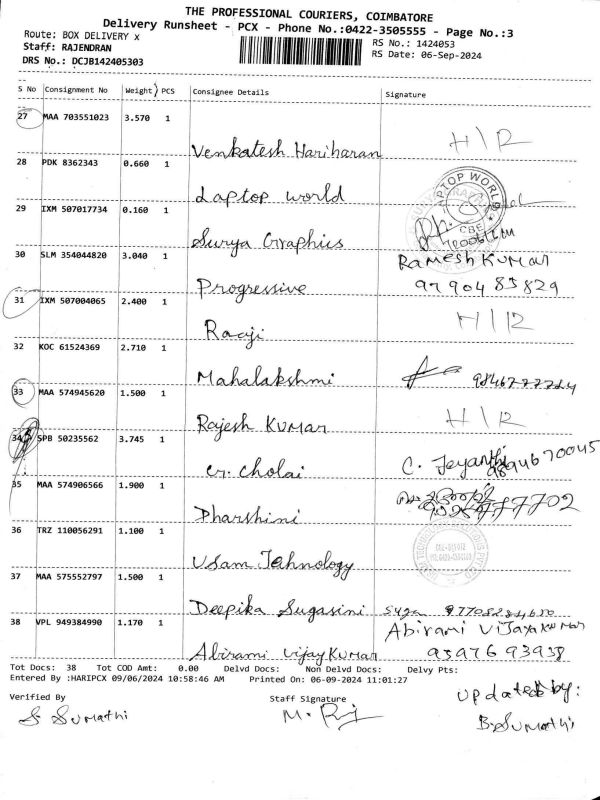 THE PROFESSIONAL COURIERS, COIMBATORE
Delivery Runsheet - PCX - Phone No.:0422-3505555 - Page No.:3
Route: BOX DELIVERY x
RS No.: 1424053
Staff: RAJENDRAN
RS Date: 06-Sep-2024
DRS No.: DCJB142405303
S No Consignment No Weight PCS Consignee Details Signature
27 MAA 703551023 3.570 1
Venkatesh Hariharan H/R
28 PDK 8362343 0.660 1
Laptop world
LAPTOP WORLD
CBE
29 IXM 507017734 0.160 1
Surya Graphics
30 SLM 354044820 3.040 1
Ramesh Kumar
Progressive 97904 85829
31 IXM 507004065 2.400 1
Raaji H/R
32 KOC 61524369 2.710 1
Mahalakshmi 9846777724
33 MAA 574945620 1.500 1
Rajesh Kumar H/R
34 SPB 50235562 3.745 1
Cr. Cholai C. Jeyanthi 9894670045
35 MAA 574906566 1.900 1
Dharshini
36 TRZ 110056291 1.100 1
Usam Tehnology
37 MAA 575552797 1.500 1
Deepika Sugasini Suga
38 VPL 949384990 1.170 1
Abirami Vijaya Kumar
Abirami vijay Kumar 95976 93938
Tot Docs: 38 Tot COD Amt: 0.00 Delvd Docs: Non Delvd Docs: Delvy Pts:
Entered By :HARIPCX 09/06/2024 10:58:46 AM Printed On: 06-09-2024 11:01:27
Verified By
Staff Signature
updated by:
S. Sumathi
B. Sumathi